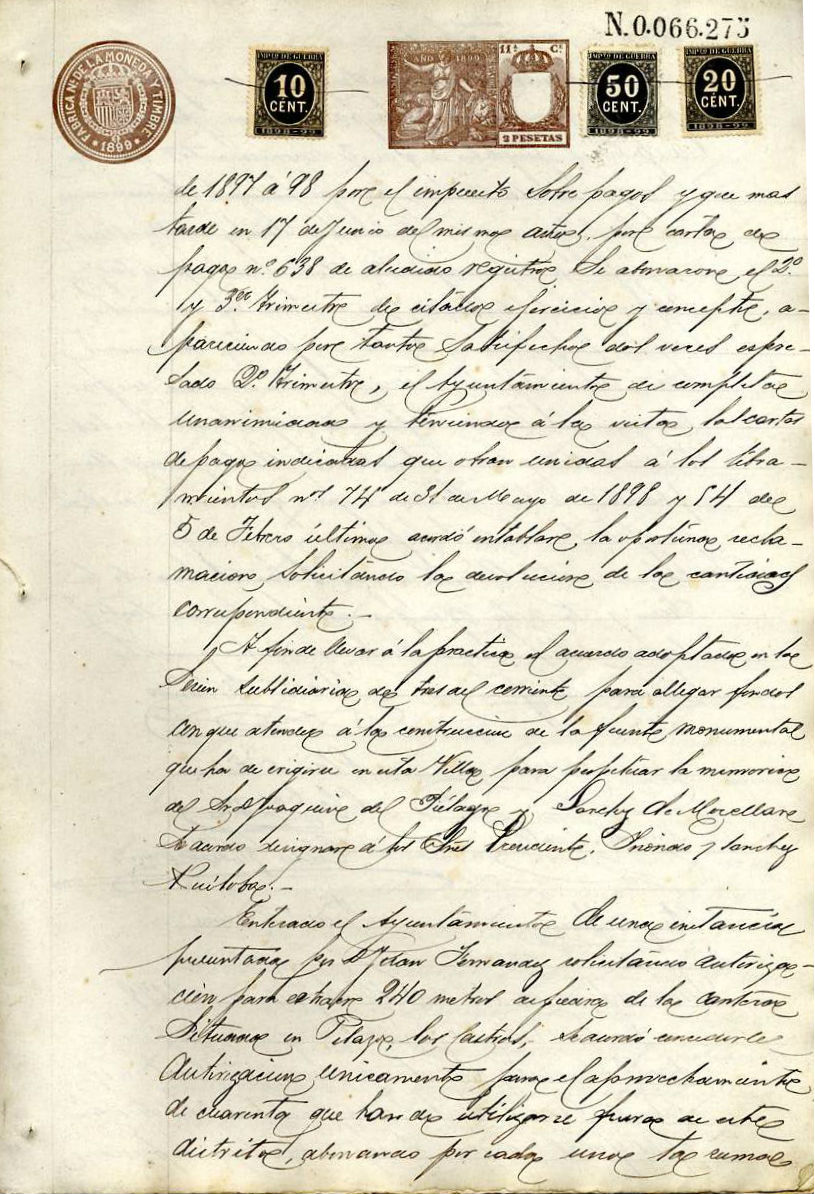 N.0.066.275
FABRICA NL DE LA MONEDA Y TIMBRE
* 1899 *
IMPTO DE GUERRA
10
CENT.
1898-99
AÑO 1899
11ª Cª
2 PESETAS
IMPTO DE GUERRA
50
CENT.
1898-99
IMPTO DE GUERRA
20
CENT.
1898-99
de 1897 á 98 por el impuesto sobre pagos y que mas
tarde en 17 de Junio del mismo año, por carta de
pago nº 638 de aludido registro se abonaron el 2º
y 3er trimestre de citado ejercicio y concepto, a-
pareciendo por tanto satisfecho dos veces espre-
sado 2º trimestre, el Ayuntamiento de completa
unanimidad y teniendo á la vista las cartas
de pago indicadas que obran unidas á los libra-
mientos nºs 74 de 31 de Mayo de 1898 y 54 de
5 de Febrero último acordó entablar la oportuna recla-
macion, solicitando la devolucion de la cantidad
correspondiente.-
A fin de llevar á la practica el acuerdo adoptado en la
sesion subsidiaria de tres del corriente para allegar fondos
con que atender á la construccion de la fuente monumental
que ha de erigirse en esta Villa para perpetuar la memoria
del Sr D Joaquin del Piélago y Sanchez de Movellan
se acordo designar á los Sres Presidente, y Sanchez
Ruiloba.-
Enterado el Ayuntamiento de una instancia
presentada por D Juan Fernandez solicitando autoriza-
cion para estraer 240 metros de piedra de la cantera
situada en los Castros, se acordó concederle
autorizacion unicamente para el aprovechamiento
de cuarenta que han de utilizarse fuera de este
distrito, abonando por cada uno la suma